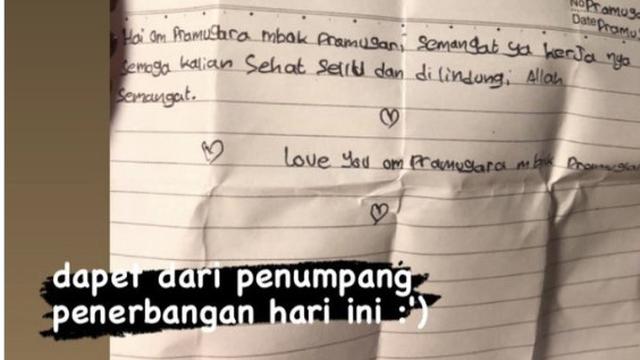 No Pramuga
Date Pramu
Hai om Pramugara mbak Pramugari, semangat ya kerja nya
semoga kalian sehat selalu dan dilindungi Allah
semangat.
Love you om Pramugara mbak Pramugari
dapet dari penumpang
penerbangan hari ini :')